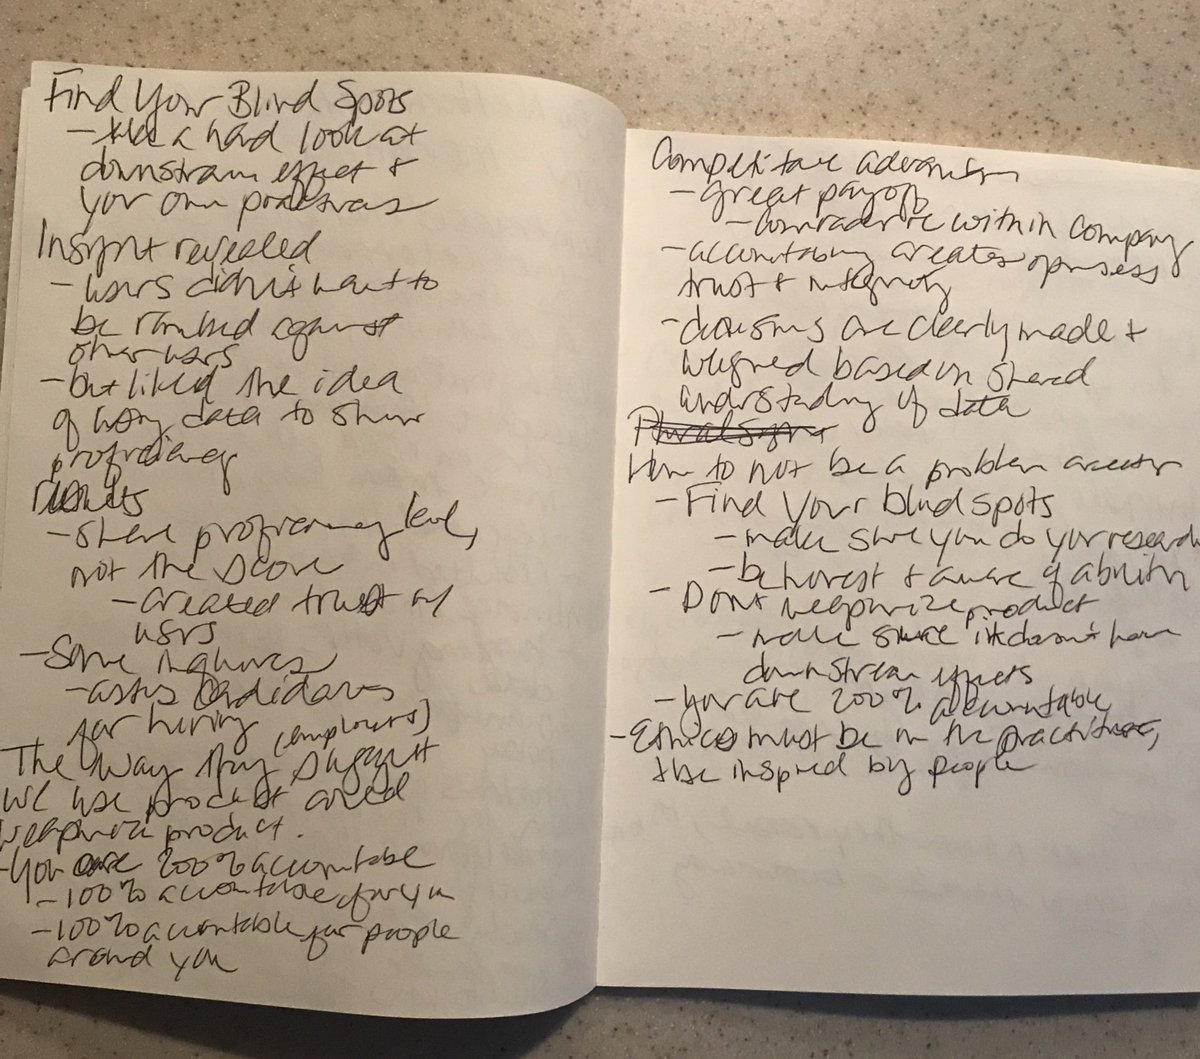 Find Your Blind Spots
- take a hard look at
downstream effect &
your own processes
Insight revealed
- users didn't want to
be ranked against
other users
- but liked the idea
of using data to show
proficiency
results
- share proficiency level,
not the score
- created trust w/
users
- Some
- candidates
for hiring (employers)
The way they suggest
we use product could
weaponize product.
- You are 200% accountable
- 100% accountable for you
- 100% accountable for people
around you
Competitive advantage
- great payoff
- comraderie within company
- accountability creates openness
trust & integrity
- decisions are clearly made &
aligned based on shared
understanding of data
Pluralsight
How to not be a problem
- Find Your blind spots
- make sure you do your research
- be honest & aware of
- Don't weaponize product
- make sure it doesn't have
downstream effects
- You are 200% accountable
- Ethics must be in the practice,
inspired by people